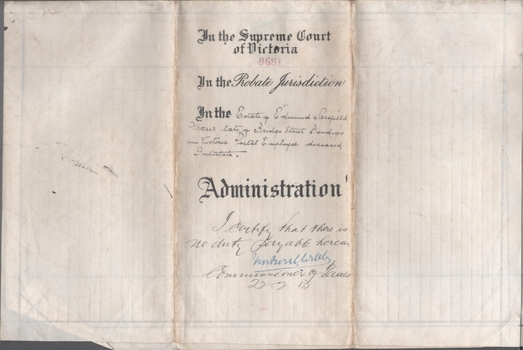 In the Supreme Court
of Victoria
In the Probate Jurisdiction
In the Estate of Edmund Sarsfield
late of Bridge Street Bendigo
in Victoria Postal Employee deceased
Intestate.
Administration
I certify that there is
no duty payable hereon
Commissioner of Taxes